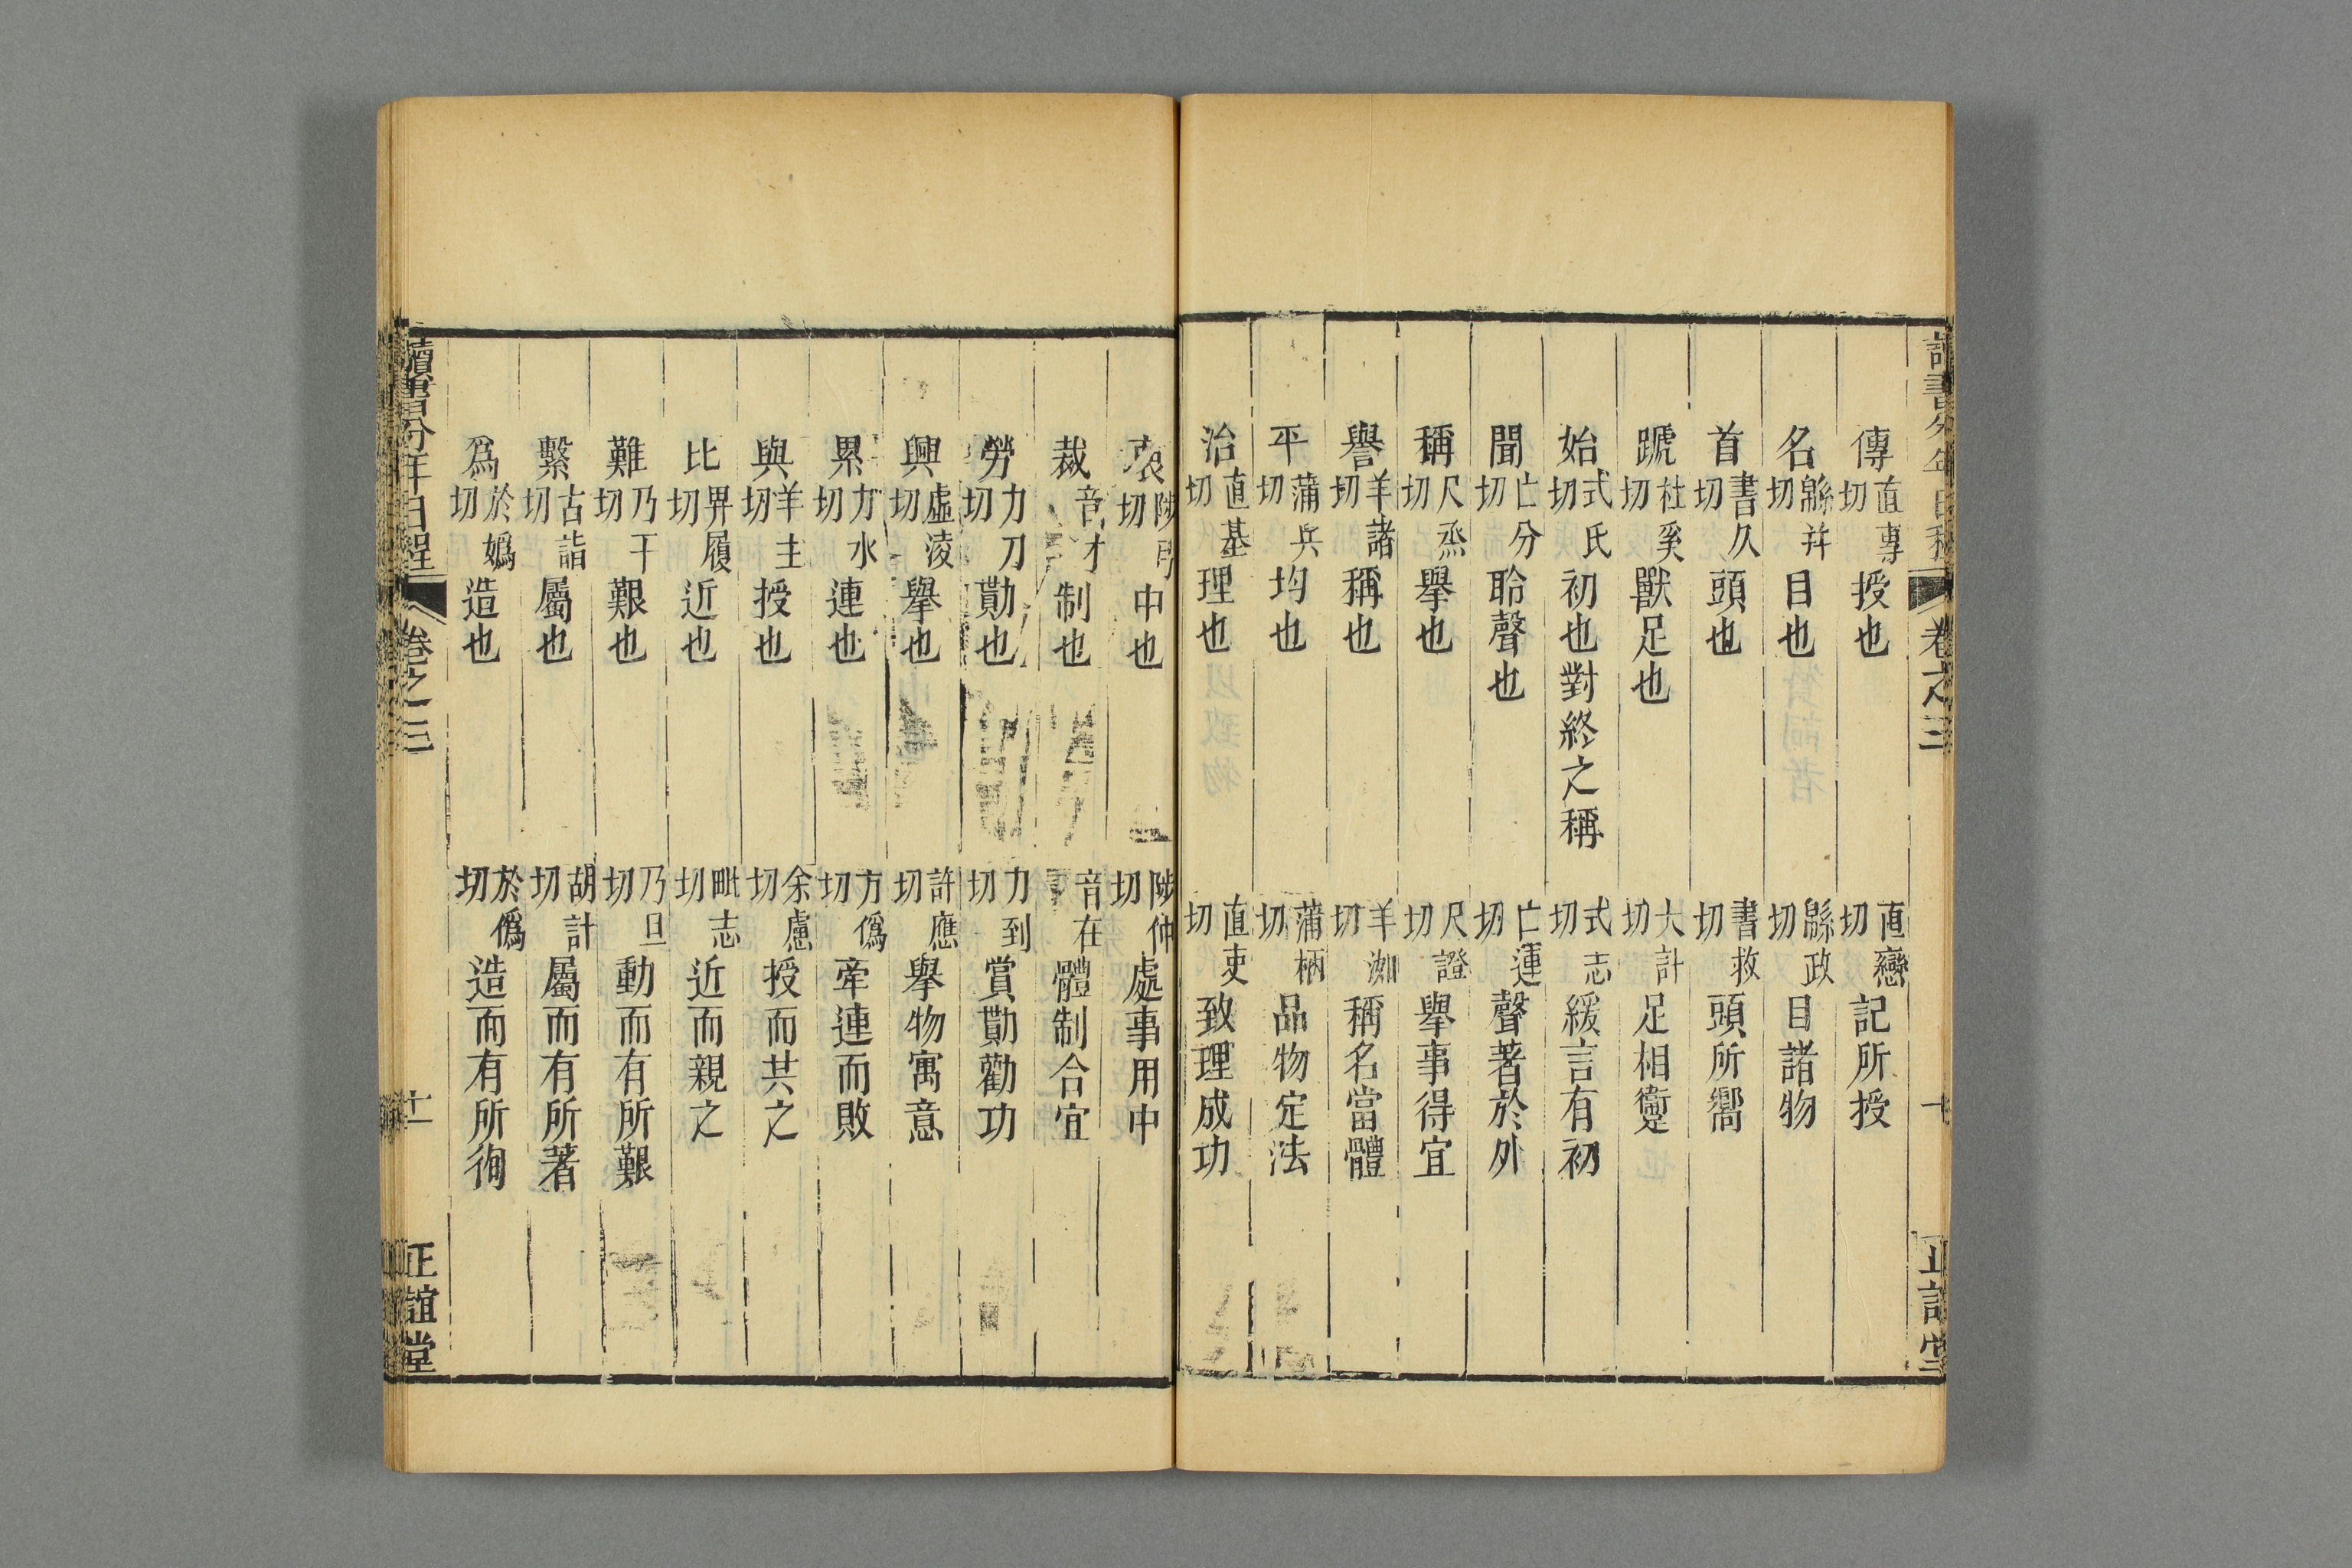 傳直專切授也 直戀切記所授
名緜幷切目也 緜政切目諸物
首書久切頭也 書救切頭所嚮
蹏社奚切獸足也 大計切足相躛
始式氏切初也對終之稱 式志切緩言有初
聞亡分切聆聲也 亡運切聲著於外
稱尺烝切舉也 尺證切舉事得宜
譽羊諸切稱也 羊洳切稱名當體
平蒲兵切均也 蒲柄切品物定法
治直基切理也 直吏切致理成功
卷之三
衷陟弓切中也 陟仲切處事用中
裁音才制也 音在體制合宜
勞力刀切勩也 力到切賞勩勸功
興虛淩切舉也 許應切舉物寓意
累力水切連也 方僞切牽連而敗
與羊主切授也 余慮切授而共之
比畀履切近也 毗志切近而親之
難乃干切艱也 乃旦切動而有所艱
繫古詣切屬也 胡計切屬而有所著
爲於嬀切造也 於僞切造而有所徇
讀書分年日程
卷之三
十一
正誼堂